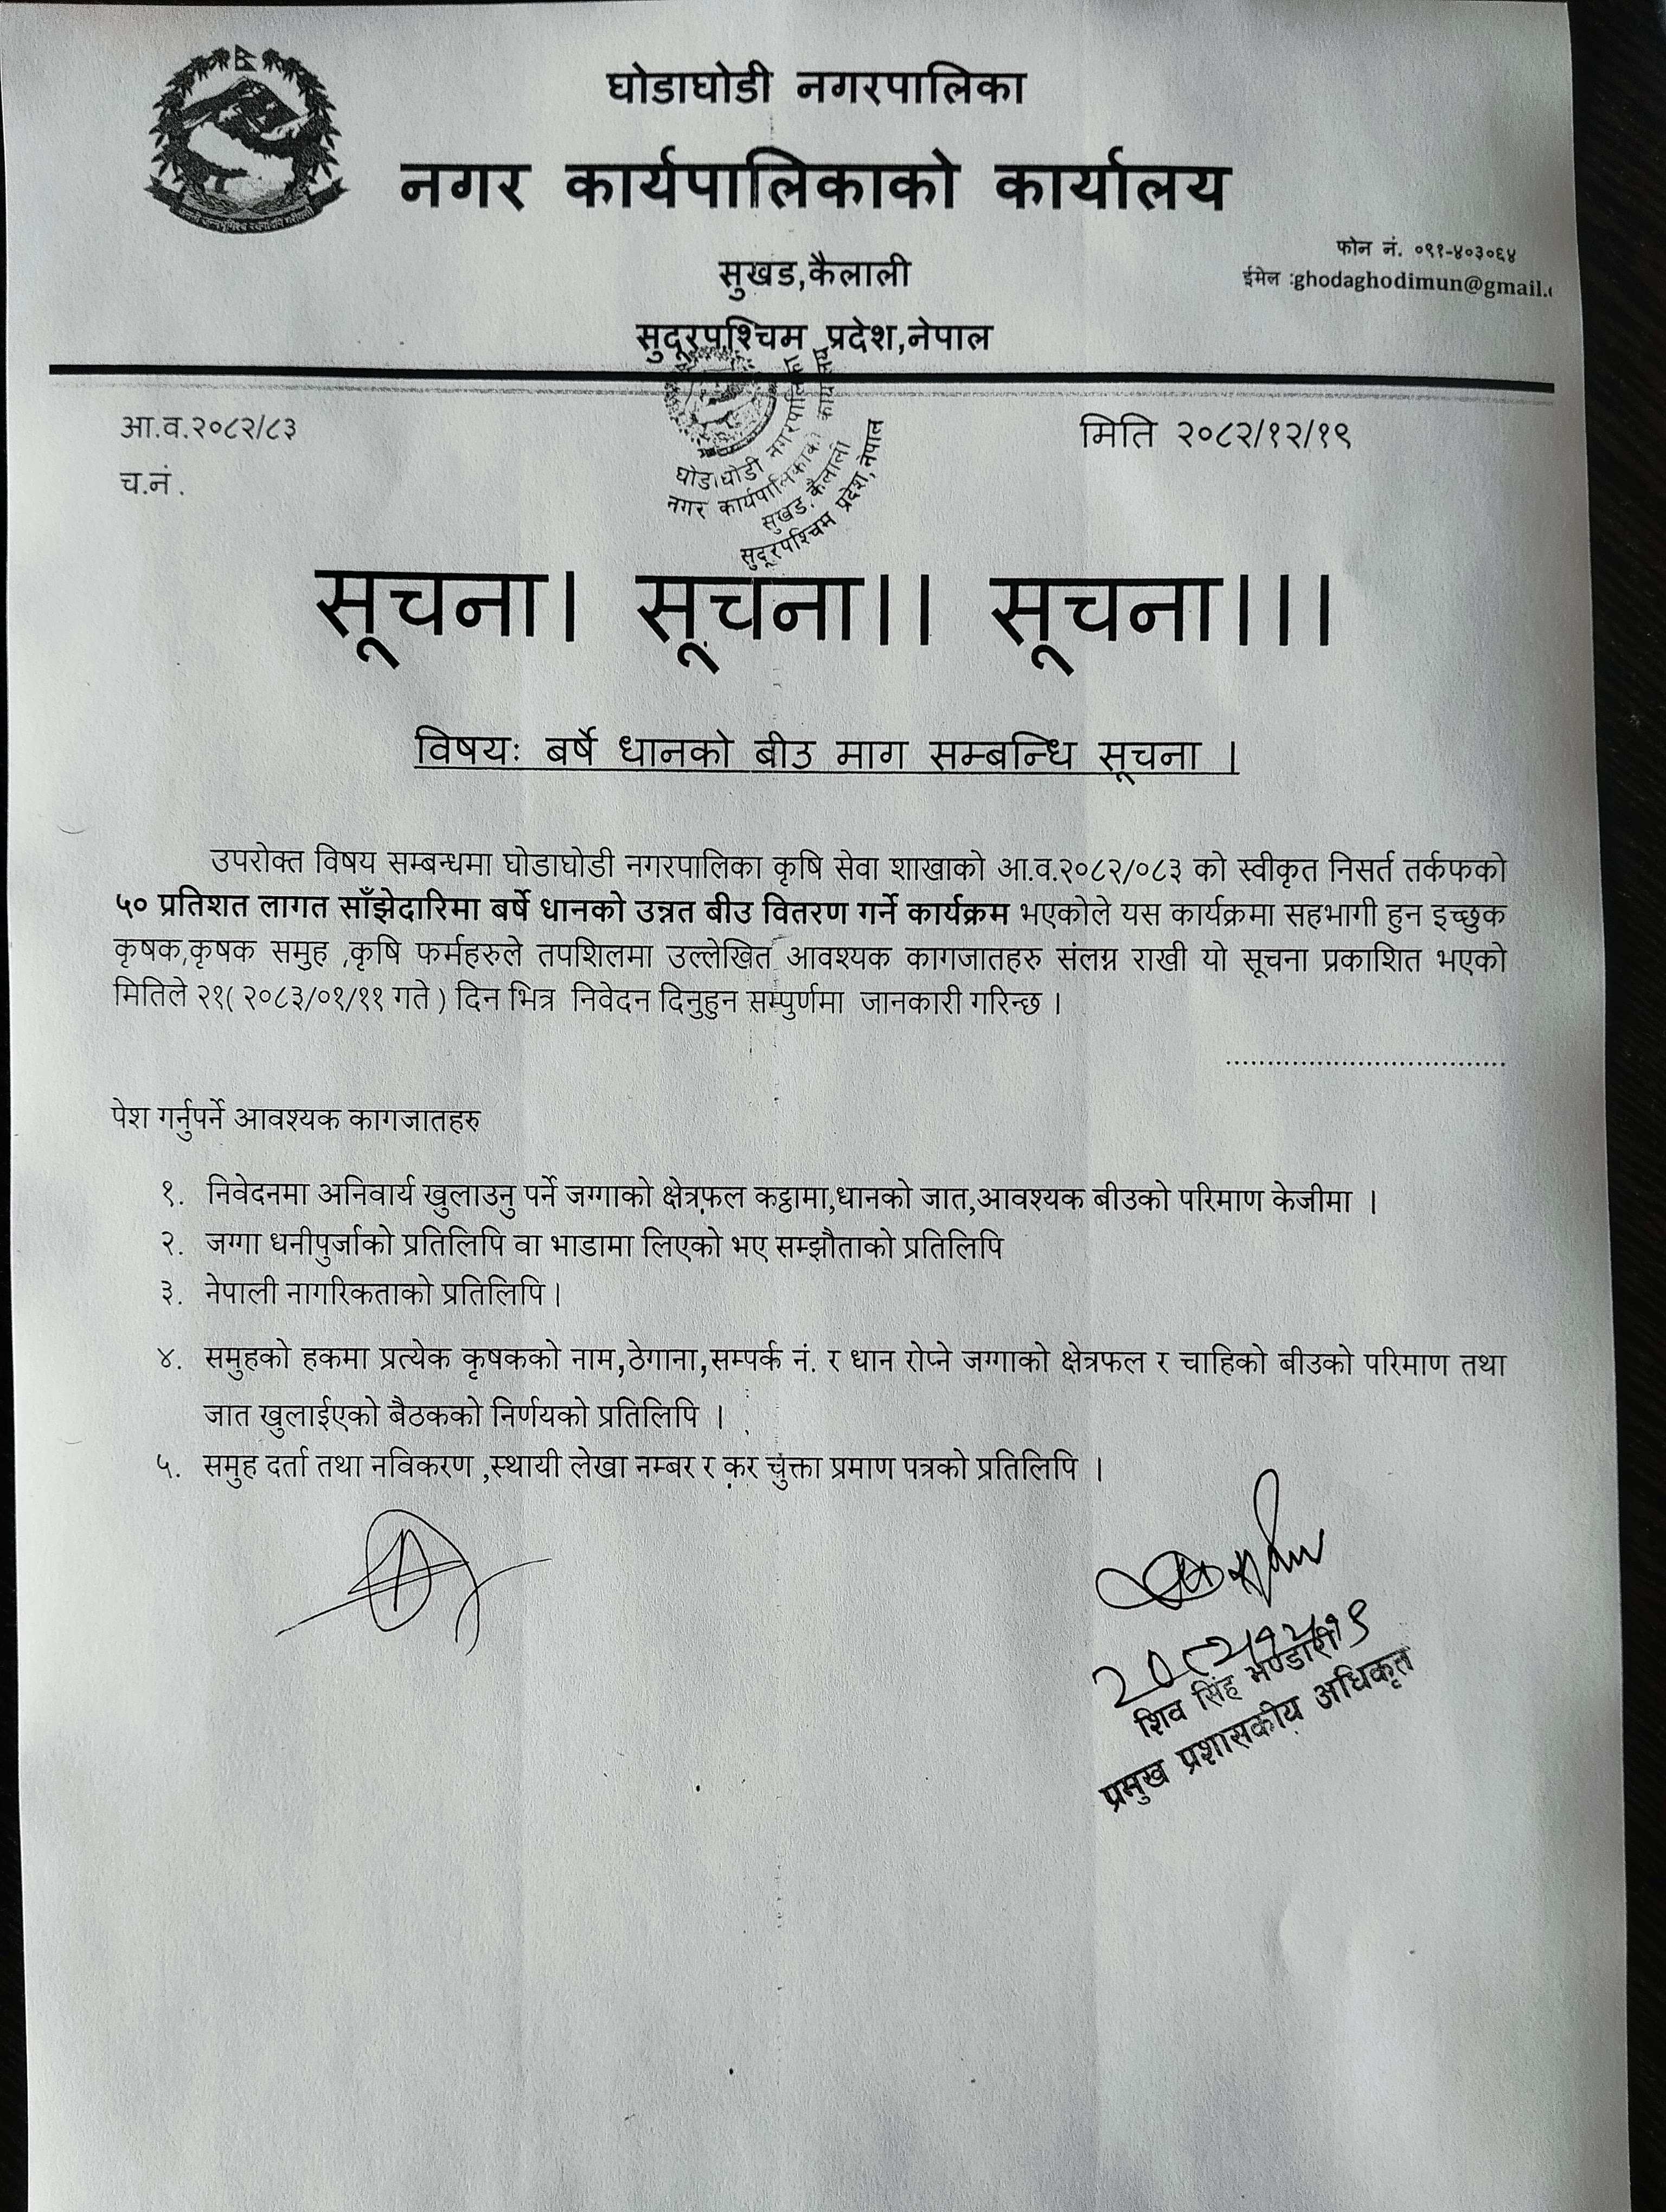 घोडाघोडी नगरपालिका
नगर कार्यपालिकाको कार्यालय
सुखड,कैलाली
सुदूरपश्चिम प्रदेश,नेपाल
फोन नं. ०९१-४०३०६४
ईमेल :ghodaghodimun@gmail.
घोडाघोडी नगरपालिका
नगर कार्यपालिकाको कार्यालय
सुखड, कैलाली
सुदूरपश्चिम प्रदेश, नेपाल
आ.व.२०८२/८३
मिति २०८२/१२/१९
च.नं.
सूचना। सूचना।। सूचना।।।
विषयः बर्षे धानको बीउ माग सम्बन्धि सूचना ।
उपरोक्त विषय सम्बन्धमा घोडाघोडी नगरपालिका कृषि सेवा शाखाको आ.व.२०८२/०८३ को स्वीकृत निसर्त तर्कफको
५० प्रतिशत लागत साँझेदारिमा बर्षे धानको उन्नत बीउ वितरण गर्ने कार्यक्रम भएकोले यस कार्यक्रमा सहभागी हुन इच्छुक
कृषक,कृषक समुह ,कृषि फर्महरुले तपशिलमा उल्लेखित आवश्यक कागजातहरु संलग्न राखी यो सूचना प्रकाशित भएको
मितिले २१( २०८३/०१/११ गते ) दिन भित्र निवेदन दिनुहुन सम्पुर्णमा जानकारी गरिन्छ ।
..................................
पेश गर्नुपर्ने आवश्यक कागजातहरु
१. निवेदनमा अनिवार्य खुलाउनु पर्ने जग्गाको क्षेत्रफल कट्ठामा,धानको जात,आवश्यक बीउको परिमाण केजीमा ।
२. जग्गा धनीपुर्जाको प्रतिलिपि वा भाडामा लिएको भए सम्झौताको प्रतिलिपि
३. नेपाली नागरिकताको प्रतिलिपि।
४. समुहको हकमा प्रत्येक कृषकको नाम,ठेगाना,सम्पर्क नं. र धान रोप्ने जग्गाको क्षेत्रफल र चाहिको बीउको परिमाण तथा
जात खुलाईएको बैठकको निर्णयको प्रतिलिपि ।
५. समुह दर्ता तथा नविकरण ,स्थायी लेखा नम्बर र कर चुक्ता प्रमाण पत्रको प्रतिलिपि ।
शिव सिंह भण्डारी
प्रमुख प्रशासकीय अधिकृत